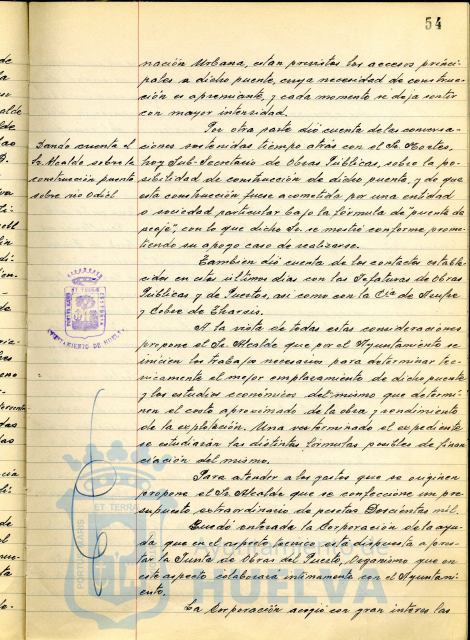 54
nación Urbana, estan previstos los accesos princi-
pales a dicho puente, cuya necesidad de construc-
ción es apremiante, y cada momento se deja sentir
con mayor intensidad.
Por otra parte dió cuenta de las conversa-
ciones sostenidas tiempo atrás con el Sr. Montes,
hoy Sub-Secretario de Obras Públicas, sobre la po-
sibilidad de construcción de dicho puente, y de que
esta construcción fuese acometida por una entidad
o sociedad particular bajo la fórmula de puente de
peaje", con lo que dicho Sr. se mostró conforme prome-
tiendo su apoyo caso de realizarse.
Dando cuenta el
Sr. Alcalde sobre la
construcción puente
sobre río Odiel
También dió cuenta de los contactos estable-
cidos en estos últimos días con las Jefaturas de Obras
Públicas y de Puertos, así como con la Cía de Azufre
y Cobre de Tharsis.
A la vista de todas estas consideraciones
propone el Sr. Alcalde que por el Ayuntamiento se
inicien los trabajos necesarios para determinar tec-
nicamente el mejor emplazamiento de dicho puente
y los estudios económicos del mismo que determi-
nen el costo aproximado de la obra y rendimiento
de la explotación. Una vez terminado el expediente
se estudiarán las distintas fórmulas posibles de finan-
ciación del mismo.
Para atender a los gastos que se originen
propone el Sr. Alcalde que se confeccione un pre-
supuesto extraordinario de pesetas Doscientas mil.
Quedó enterada la Corporación de la ayu-
da que en el aspecto tecnico está dispuesta a pres-
tar la Junta de Obras del Puerto, Organismo que en
este aspecto colaborará intimamente con el Ayuntami-
ento.
La Corporación acogió con gran interes las
AYUNTAMIENTO DE HUELVA
PORTUS MARIS ET TERRAE CUSTODIA
PORTUS MARIS
ET TERRA
Ayuntamiento de
HUELVA